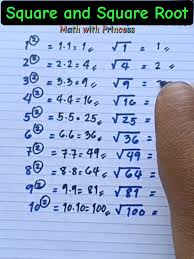 Square and Square Root
Math with Princess
1² = 1·1 = 1,, √1 = 1,,
2² = 2·2 = 4,, √4 = 2,,
3² = 3·3 = 9,, √9 =
4² = 4·4 = 16,, √16 =
5² = 5·5 = 25,, √25 =
6² = 6·6 = 36,, √36 =
7² = 7·7 = 49,, √49 =
8² = 8·8 = 64,, √64 =
9² = 9·9 = 81,, √81 =
10² = 10·10 = 100,, √100 =